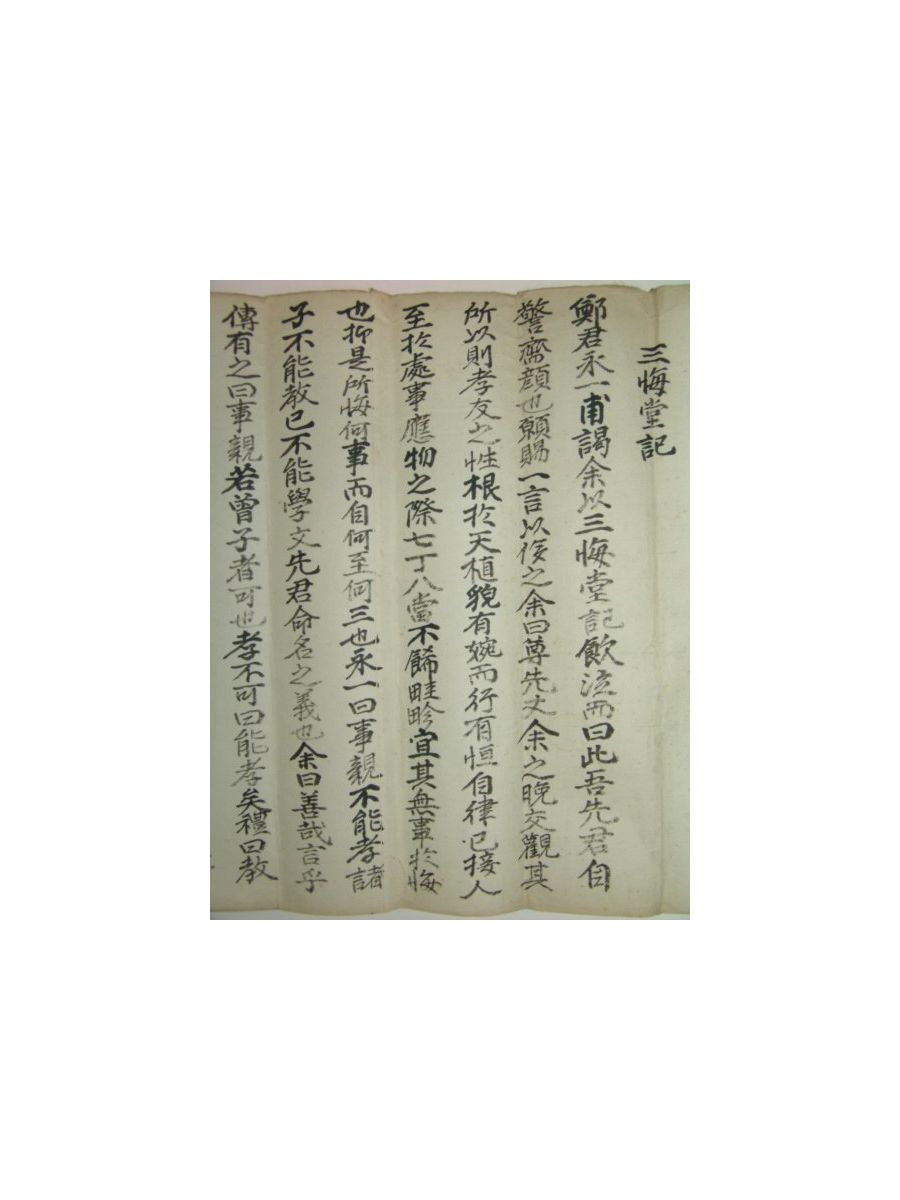 三悔堂記
鄭君永一甫謁余以三悔堂記飮泣而曰此吾先君自
警齋顔也願賜一言以後之余曰尊先丈余之晩交觀其
所以則孝友之性根於天植貌有婉而行有恒自律已接人
至於處事應物之際七丁八當不餙畦畛宜其無事於悔
也抑是所悔何事而自何至何三也永一曰事親不能孝諸
子不能敎已不能學文先君命名之義也余曰善哉言乎
傳有之曰事親若曾子者可也孝不可曰能孝矣禮曰敎